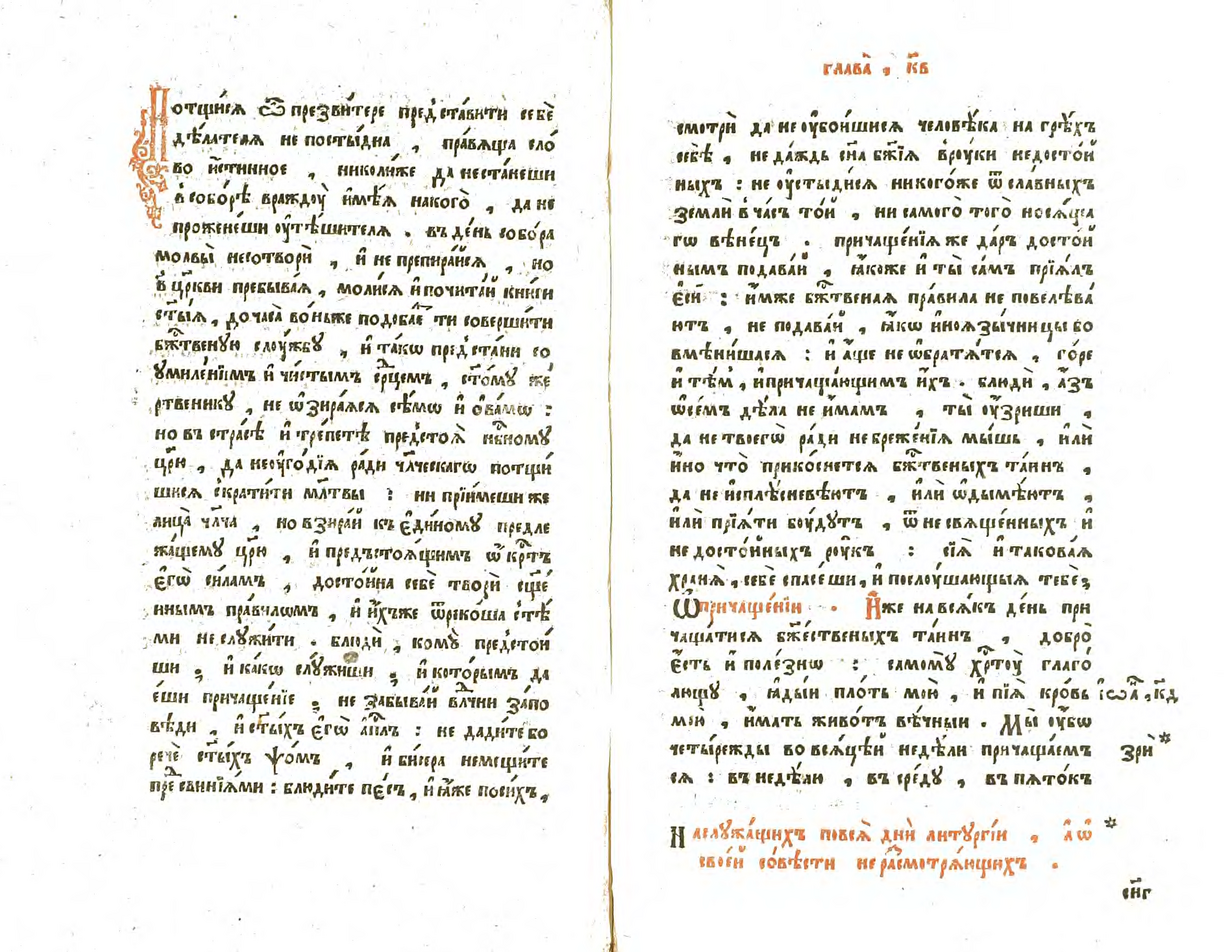 Потщи́сѧ ѿ презви́тере пред̾ста́вити себѐ
дѣ́лателѧ не посты́дна , пра́вѧща сло́
во и҆́стинное , николи́же да не ста́неши
в̾ собо́рѣ враждоу̀ и҆мѣ́ѧ на ко́го , да не
прожене́ши оу҆тѣ́шителѧ . въ де́нь собо́ра
молвы̀ не сотворѝ , и҆ не препира́йсѧ , но
в̾ цр҃кви пребыва́ѧ , моли́сѧ и҆ почита́й кни́ги
ст҃ы́ѧ , до часа̀ во́ньже подоба́е ти соверши́ти
бж҃твеную слꙋ́жбꙋ , и҆ та́кѡ пред̾ста́ни со
ᲂумиле́нїимъ и҆ чи́стымъ ср҃цемъ , ст҃о́мꙋ же́
ртвеникꙋ , не ѡ҆зира́ѧсѧ сѣ́мѡ и҆ о҆ва́мѡ :
но въ стра́сѣ и҆ тре́петѣ предстоѧ̀ нб҃номꙋ
цр҃ю̀ , да не оу҆го́дїѧ ра́ди чл҃ческагѡ потщи́
шисѧ с̾крати́ти мл҃твы : ни прїи́меши же
лица̀ чл҃ча , но взира́й къ є҆ди́номꙋ предле
жа́щемꙋ цр҃ю̀ , и҆ предъстоѧ́щимъ ѡ҆́крⷭ҇тъ
є҆гѡ̀ си́ламъ , досто́йна себѐ творѝ сщ҃е
ннымъ пра́виломъ , и҆ и҆́хъже ѿреко́ша ст҃ѣ́
ми не слꙋжи́ти . блюдѝ , комꙋ̀ предстои́
ши , и҆ ка́кѡ слꙋ́жиши , и҆ кото́рымъ да
е́ши причаще́нїе , не забыва́й влⷣчни за́по
вѣди , и҆ ст҃ы́хъ є҆гѡ̀ а҆пⷭ҇лъ : не дади́те бо
речѐ ст҃ы́хъ ѱо́мъ , и҆ би́сера не мещи́те
преⷣ свинїѧ́ми : блюди́те пе́съ , и҆ ꙗ҆́же по си́хъ ,
глава̀ , к҃в
смотрѝ да не оу҆бои́шисѧ человѣ́ка на грѣ́хъ
себѣ̀ , не да́ждь сн҃а бж҃їѧ в̾ роу́ки недосто́й
ныхъ : не оу҆стыди́сѧ никого́же ѿ сла́вныхъ
землѝ в̾ ча́съ то́й , ни самого̀ того̀ носѧ́ща
гѡ вѣне́цъ . причаще́нїѧ же да́ръ досто́й
нымъ подава́й , ꙗ҆́коже и҆ ты̀ са́мъ прїѧ́лъ
є҆сѝ : и҆́мже бж҃твенаѧ пра́вила не повелѣва́
ютъ , не подава́й , ꙗ҆́кѡ и҆ноѧзы́чницы бо
вмѣни́шасѧ : и҆ а҆́ще не ѡ҆братѧ́тсѧ , го́ре
и҆ тѣ́м̾ , и҆ причаща́ющимъ и҆́хъ . блюдѝ , а҆́зъ
ѡ҆ се́мъ дѣ́ла не и҆́мамъ , ты̀ оу҆́зриши ,
да не твоегѡ̀ ра́ди небреже́нїѧ мы́шь , и҆лѝ
и҆́но что̀ прико́снетсѧ бж҃твеныхъ та́инъ ,
да не и҆спле́сневѣютъ , и҆лѝ ѡ҆дымѣ́ютъ ,
и҆лѝ прїѧ́ти бꙋ́дꙋтъ , ѿ несвѧще́нныхъ и҆
недосто́йныхъ роу́къ : сїѧ̀ и҆ такова́ѧ
хранѧ̀ , себѐ спасе́ши , и҆ послꙋ́шающыѧ тебѐ ;
Ѡ҆ причаще́нїи . И҆́же на всѧ́къ де́нь при
чаща́тисѧ бж҃е́ственыхъ та́инъ , добро̀
є҆́сть и҆ поле́знѡ : самомꙋ̀ хрⷭ҇тоу̀ глаго́
лющꙋ , ꙗ҆ды́и пло́ть мою̀ , и҆ пїѧ̀ кро́вь
і҆ѡа҃ , к҃д
мою̀ , и҆́мать живо́тъ вѣ́чныи . Мы̀ оу҆́бѡ
четы́режды во всѧ́цѣй недѣ́ли причаща́емъ
зрѝ *
сѧ : въ недѣ́лю , въ сре́дꙋ , въ пѧто́къ
На слꙋжа́щихъ по всѧ̀ днѝ литꙋргі́и , а҆ ѡ҆ *
свое́й со́вѣсти не раⷥсмотрѧ́ющихъ .
сн҃г